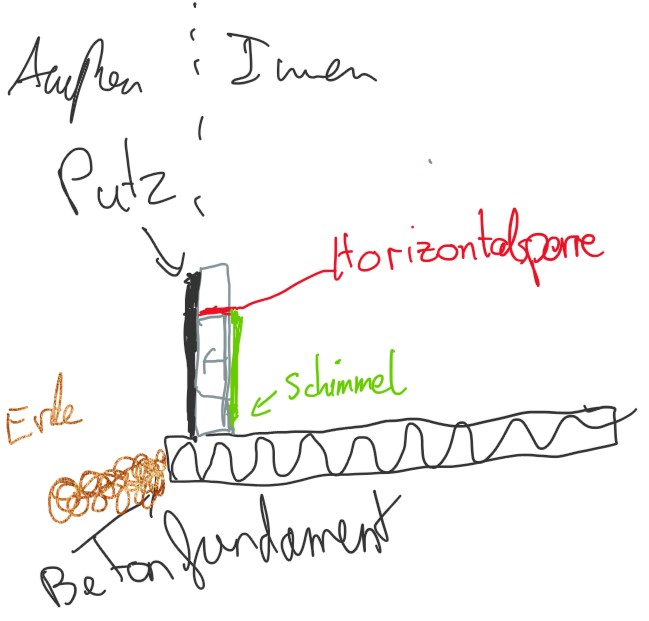 Außen Innen
Putz
Horizontalsperre
Schimmel
Erde
Betonfundament